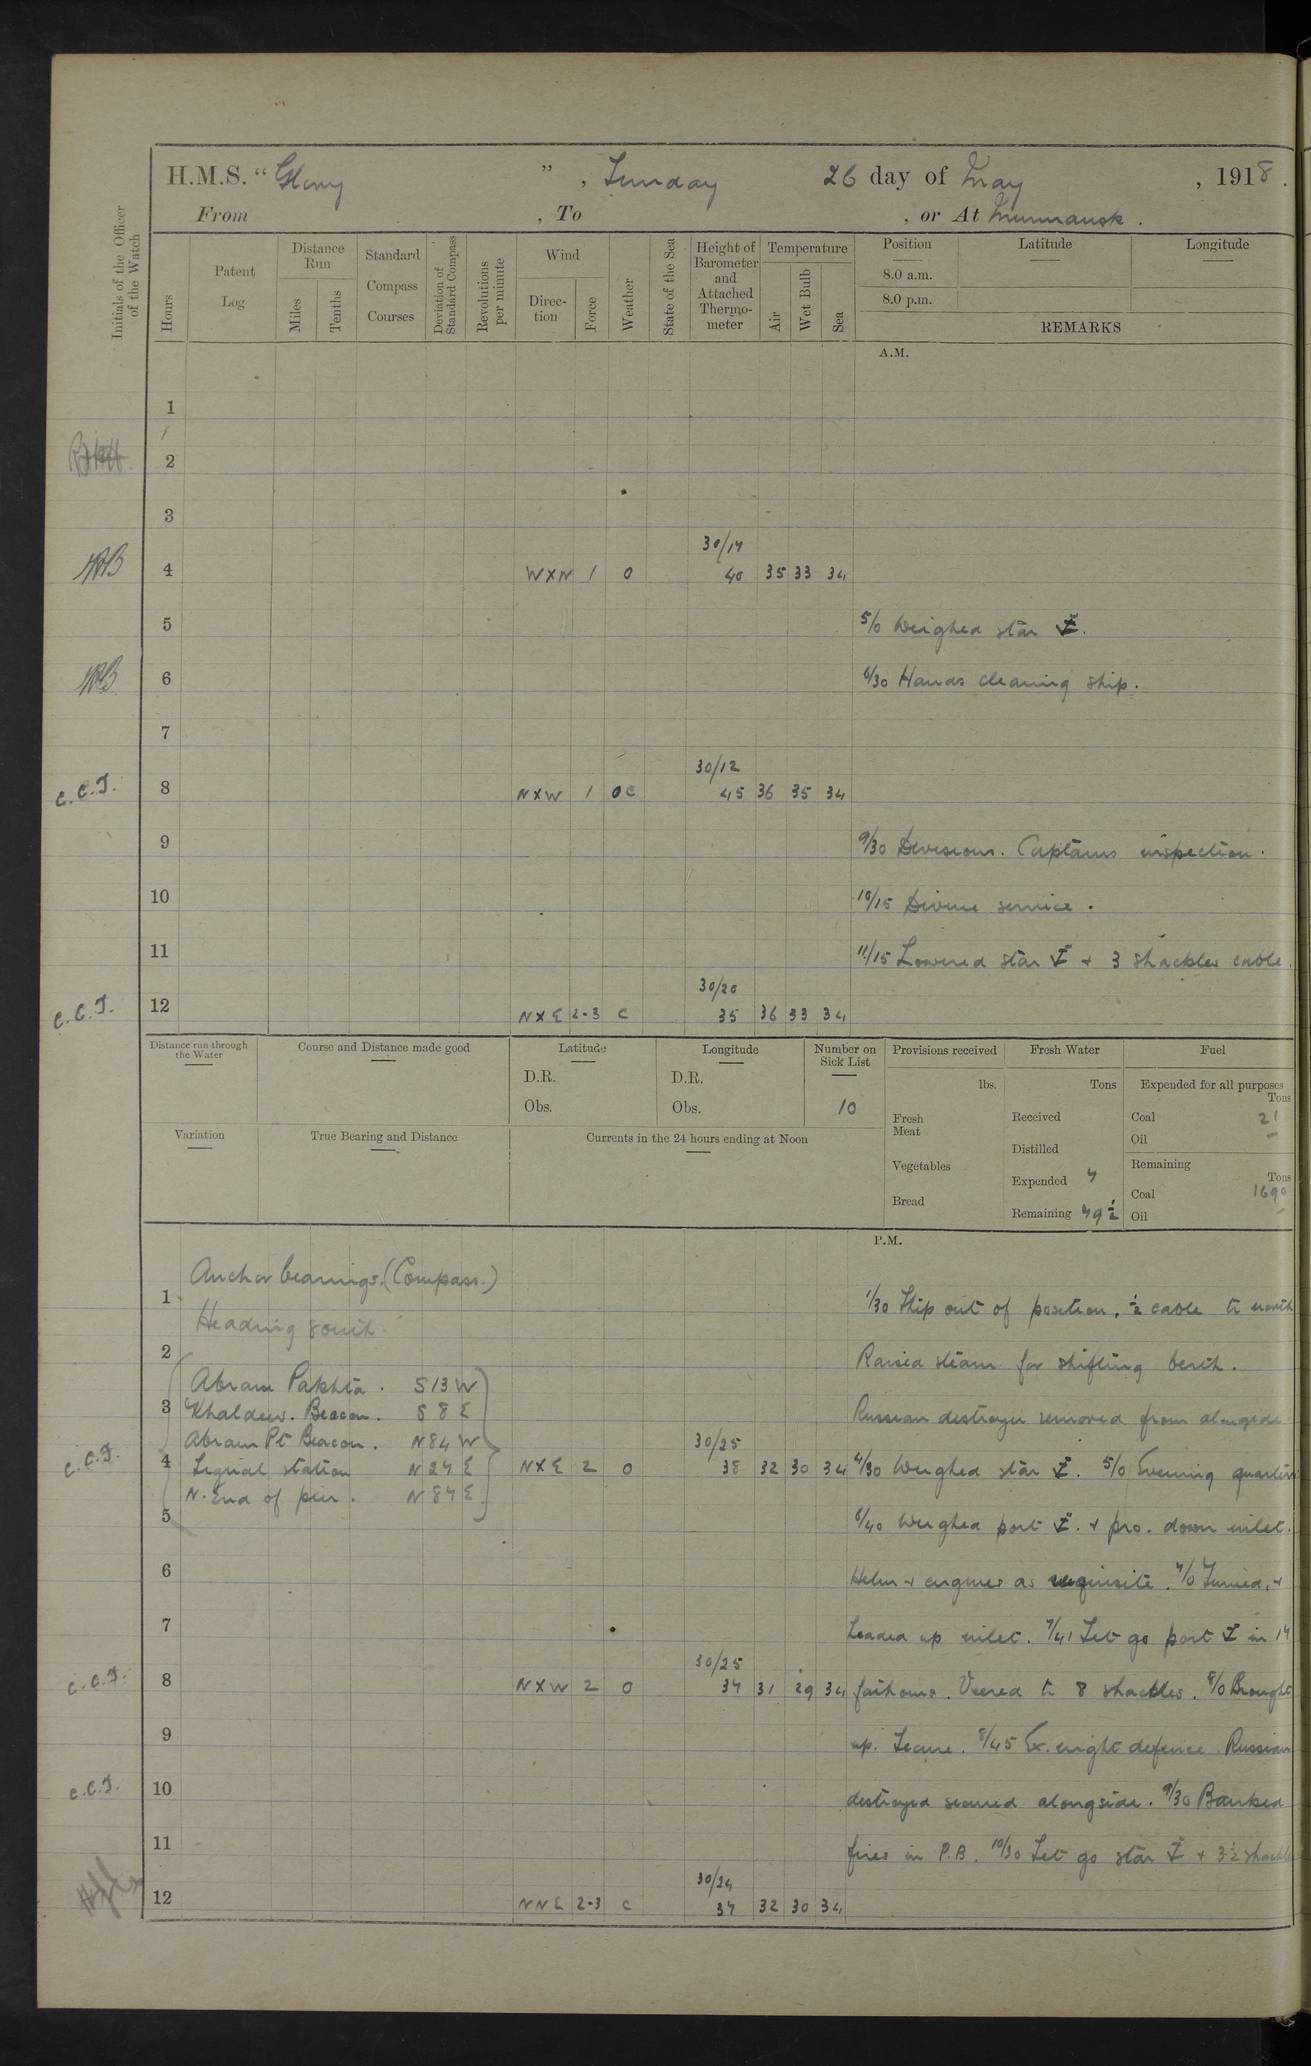 H.M.S. "Glory", Sunday 26 day of May, 1918.
From , To , or At Murmansk.
Initials of the Officer of the Watch
Hours
Patent Log
Distance Run
Miles
Tenths
Standard Compass Courses
Deviation of Standard Compass
Revolutions per minute
Wind
Direc-tion
Force
Weather
State of the Sea
Height of Barometer and Attached Thermo-meter
Temperature
Air
Wet Bulb
Sea
Position Latitude Longitude
8.0 a.m.
8.0 p.m.
REMARKS
A.M.
1
2
3
30/17
4 WXN 1 O 40 35 33 34
5 5/0 Weighed star ⚓.
6 6/30 Hands cleaning ship.
7
30/12
C.C.J. 8 NXW 1 OC 45 36 35 34
9 9/30 Divisions. Captains inspection.
10 10/15 Divine service.
11 11/15 Lowered star ⚓ + 3 shackles cable.
30/20
C.C.J. 12 NXE 2-3 C 35 36 33 34
Distance run through the Water
Course and Distance made good
Latitude
D.R.
Obs.
Longitude
D.R.
Obs.
Number on Sick List
10
Provisions received
lbs.
Fresh Meat
Vegetables
Bread
Fresh Water
Tons
Received
Distilled
Expended 7
Remaining 79 1/2
Fuel
Expended for all purposes
Tons
Coal 21
Oil –
Remaining
Tons
Coal 1690
Oil –
Variation
True Bearing and Distance
Currents in the 24 hours ending at Noon
P.M.
Anchor bearings. (Compass.)
1 1/30 Ship out of position, 1/2 cable to north
Heading south.
2 Raised steam for shifting berth.
Abram Pakhta. S 13 W
3 Beacon. S 8 E Russian destroyer removed from alongside
Abram Pt Beacon. N 84 W
30/25
C.C.J. 4 Signal station N 27 E NXE 2 O 38 32 30 34 4/30 Weighed star ⚓. 5/0 Evening quarters
N. End of pier. N 87 E
5 6/40 Weighed port ⚓. + pro. down inlet.
6 Helm + engines as requisite. 7/0 Turned, +
7 headed up inlet. 7/41 Let go port ⚓ in 17
30/25
C.C.J. 8 NXW 2 O 37 31 29 34 fathoms. Veered to 8 shackles. 8/0 Brought
9 up. Secure. 8/45 Ex. night defence Russian
C.C.J. 10 destroyed secured alongside. 9/30 Banked
11 fires in P.B. 10/30 Let go star ⚓ + 3 1/2 shackles
30/24
12 NNE 2-3 C 37 32 30 34